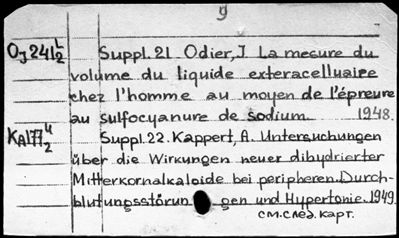 9
Oj 241 L/2 Suppl. 21 Odier, J La mesure du
volume du liquide exteracelluaire
chez l'homme au moyen de l'épreure
au sulfocyanure de sodium 1948.
KA177 4/2 Suppl. 22. Kappert, A. Untersuchungen
über die Wirkungen neuer dihydrierter
Mitterkornalkaloide bei peripheren Durch-
blutungsstörun gen und Hypertonie. 1949.
см. след. карт.